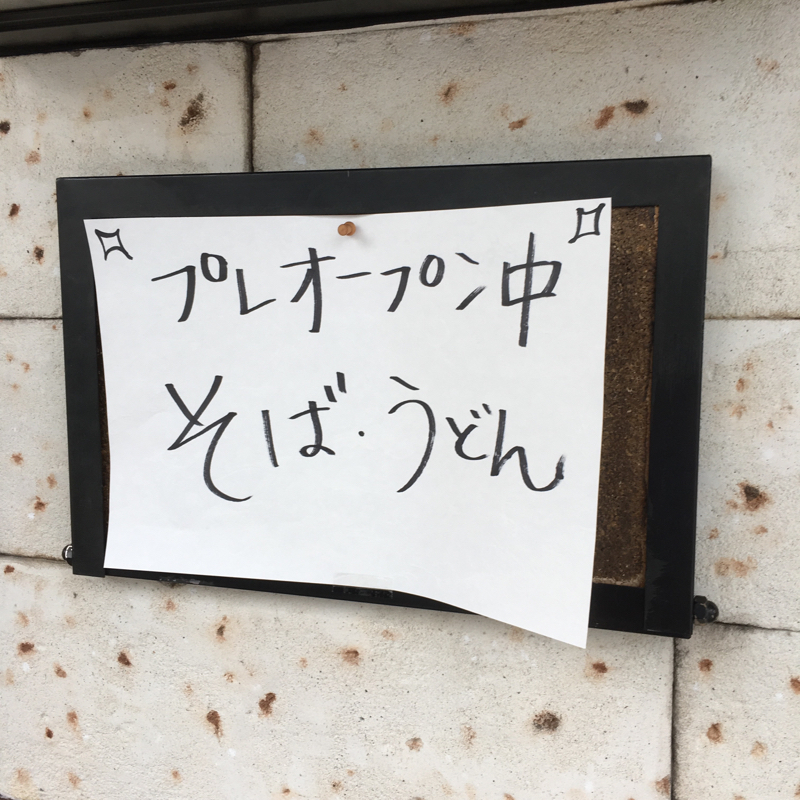 プレオープン中
そば・うどん